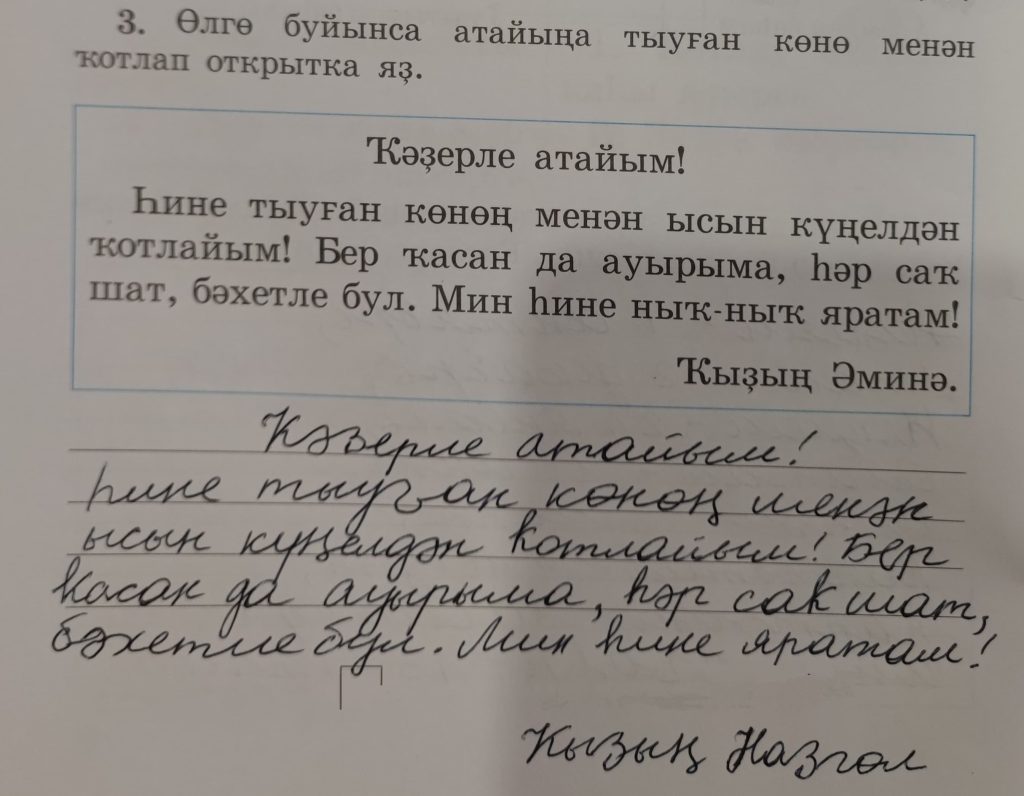 3. Өлгө буйынса атайыңа тыуған көнө менән
ҡотлап открытка яҙ.
Ҡәҙерле атайым!
Һине тыуған көнөң менән ысын күңелдән
ҡотлайым! Бер ҡасан да ауырыма, һәр саҡ
шат, бәхетле бул. Мин һине ныҡ-ныҡ яратам!
Ҡыҙың Әминә.
Ҡәҙерле атайым!
Һине тыуған көнөң менән
ысын күңелдән ҡотлайым! Бер
ҡасан да ауырыма, һәр саҡ шат,
бәхетле бул. Мин һине яратам!
Ҡыҙың Назгөл